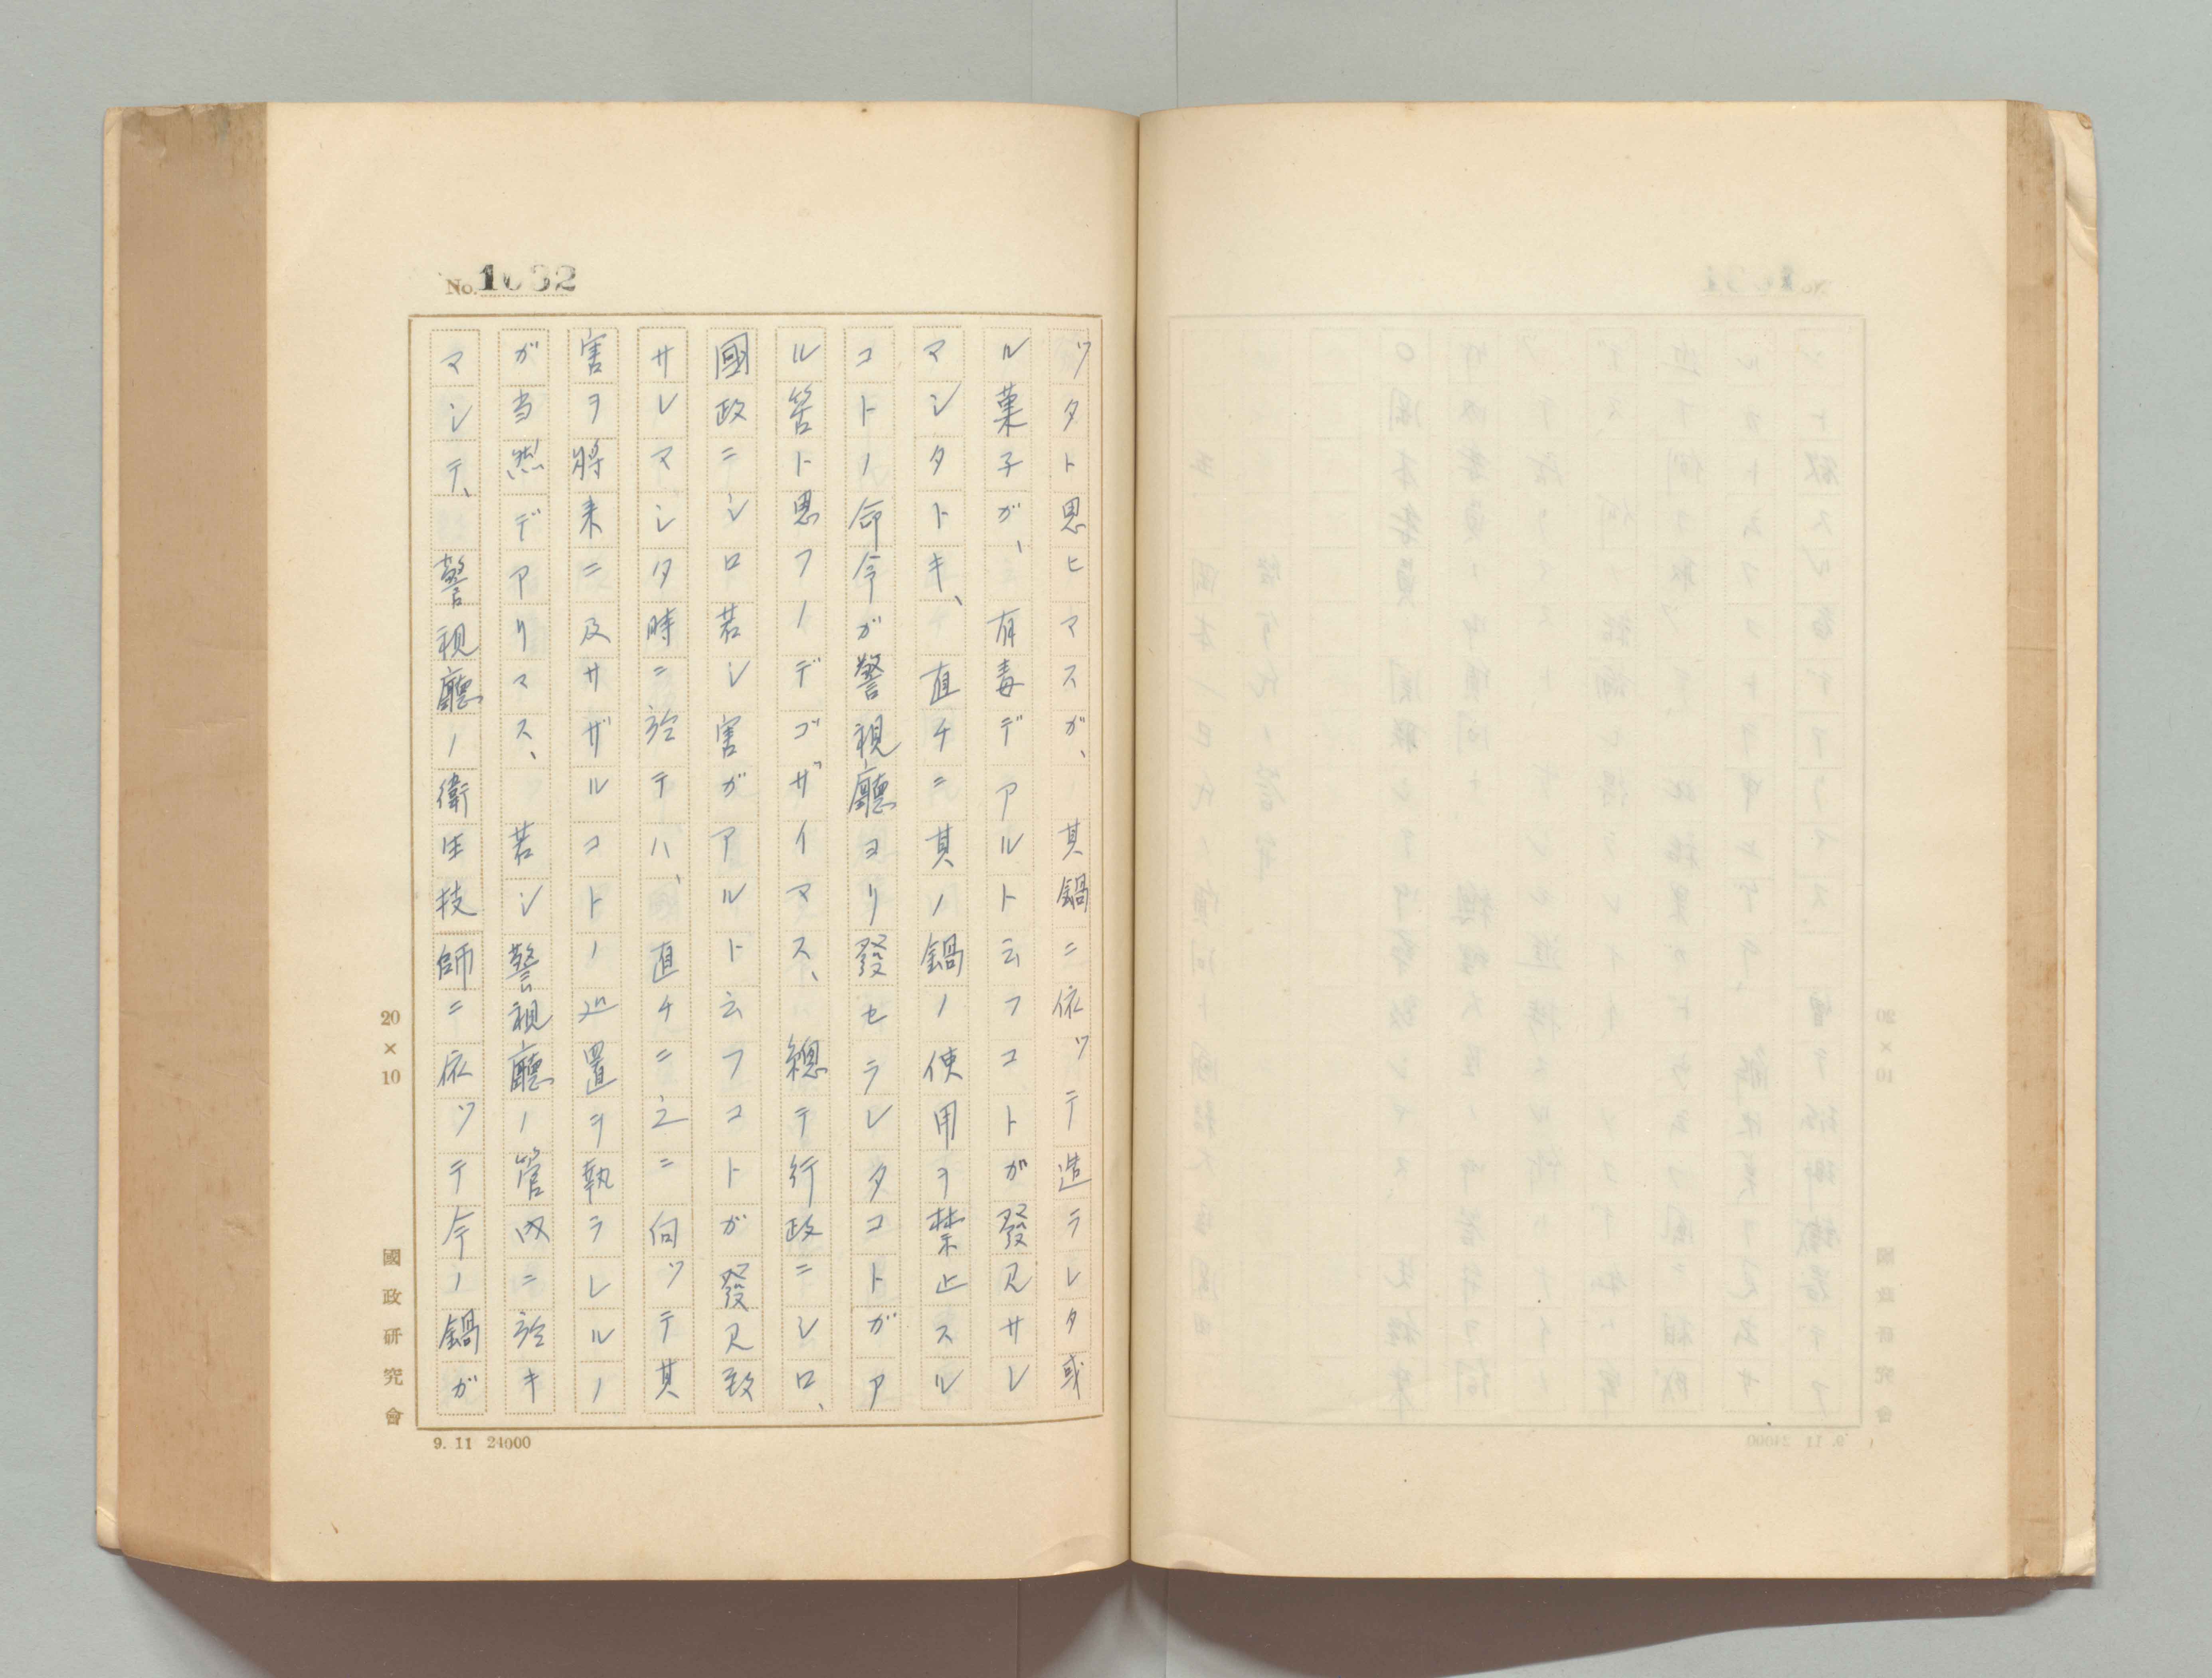 No. 1032
ツタト思ヒマスガ、其鍋ニ依ツテ造ラレタ或
ル菓子ガ、有毒デアルト云フコトガ發見サレ
マシタトキ、直チニ其ノ鍋ノ使用ヲ禁止スル
コトノ命令ガ警視廳ヨリ發セラレタコトガア
ル筈ト思フノデゴザイマス、總テ行政ニシロ、
國政ニシロ若シ害ガアルト云フコトガ發見致
サレマシタ時ニ於テハ、直チニ之ニ向ツテ其
害ヲ將来ニ及サザルコトノ処置ヲ執ラレルノ
ガ当然デアリマス、若シ警視廳ノ管内ニ於キ
マシテ、警視廳ノ衛生技師ニ依ツテ今ノ鍋ガ
20×10
國政研究會
9. 11 24000